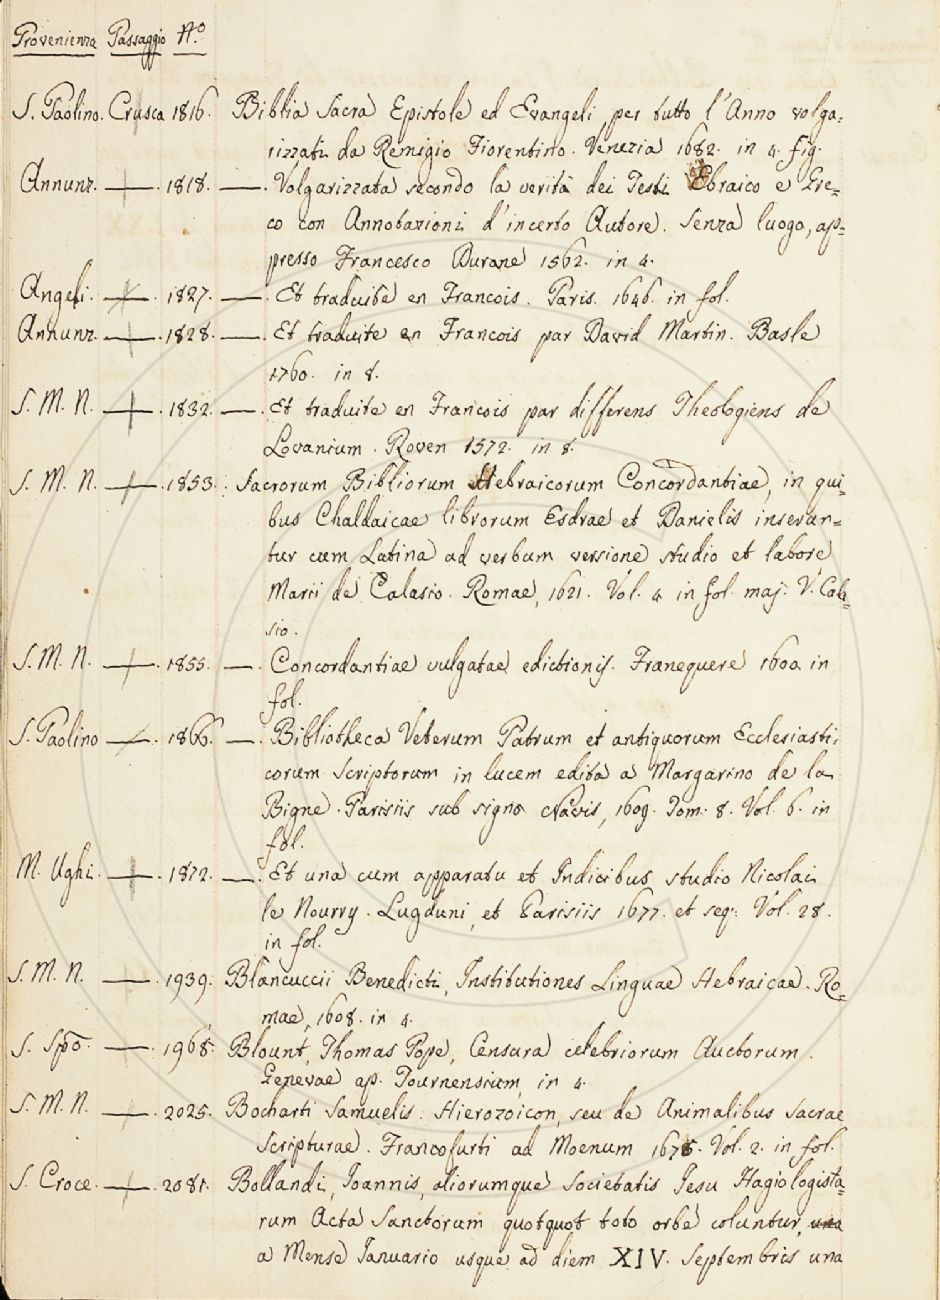 Provenienza Passaggio N.o
S. Paolino. Crusca 1816. Biblia Sacra Epistole ed Evangeli, per tutto l'Anno volga-
rizzati da Remigio Fiorentino. Venezia 1682. in 4. fig.
Annunz. — . 1818. — . Volgarizzata secondo la verità dei Testi Ebraico e Gre-
co con Annotazioni d'incerto Autore. Senza luogo, ap-
presso Francesco Durone 1562. in 4.
Angeli. — . 1827. — . Et traduite en Francois. Paris. 1646. in fol.
Annunz. — . 1828. — . Et traduite en Francois par David Martin. Basle
1760. in 8.
S. M. N. — . 1832. — . Et traduite en Francois par differens Theologiens de
Lovanium. Roven 1572. in 8.
S. M. N. — . 1853. Sacrorum Bibliorum Hebraicorum Concordantiae, in qui-
bus Chaldaicae librorum Esdrae et Danielis inserun-
tur cum Latina ad verbum versione studio et labore
Marii de Calasio. Romae, 1621. Vol. 4 in fol. maj. V. Cala-
sio.
S. M. N. — . 1855. — . Concordantiae vulgatae edictionis. Franequere 1600 in
fol.
S. Paolino — . 1866. — . Bibliotheca Veterum Patrum et antiquorum Ecclesiasti-
corum scriptorum in lucem edita a Margarino de la
Bigne. Parisiis sub signo Navis, 1609. Tom. 8. Vol. 6. in
fol.
M. Ughi. — . 1872. — . Et una cum apparatu et Indicibus studio Nicolai
le Nourry. Lugduni, et Parisiis 1677. et seq. Vol. 28.
in fol.
S. M. N. — . 1939. Blancuccii Benedicti, Institutiones Linguae Hebraicae. Ro-
mae, 1608. in 4.
S. Spo. — . 1968. Blount, Thomas Pope, Censura celebriorum Auctorum.
Genevae ap. Tournensium, in 4.
S. M. N. — . 2025. Bocharti Samuelis. Hierozoicon, seu de Animalibus Sacrae
Scripturae. Francofurti ad Moenum 1675. Vol. 2. in fol.
S. Croce. — . 2081. Bollandi, Joannis, aliorumque Societatis Jesu Hagiologista-
rum Acta Sanctorum quotquot toto orbe coluntur, una
a Mense Januario usque ad diem XIV. Septembris una